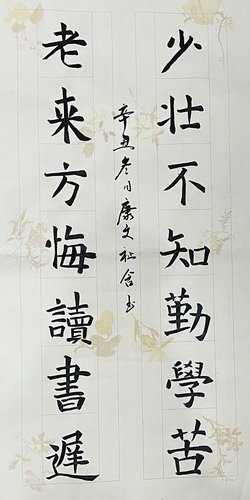 少壮不知勤學苦
老来方悔讀書遲
辛丑冬月康文祉含书